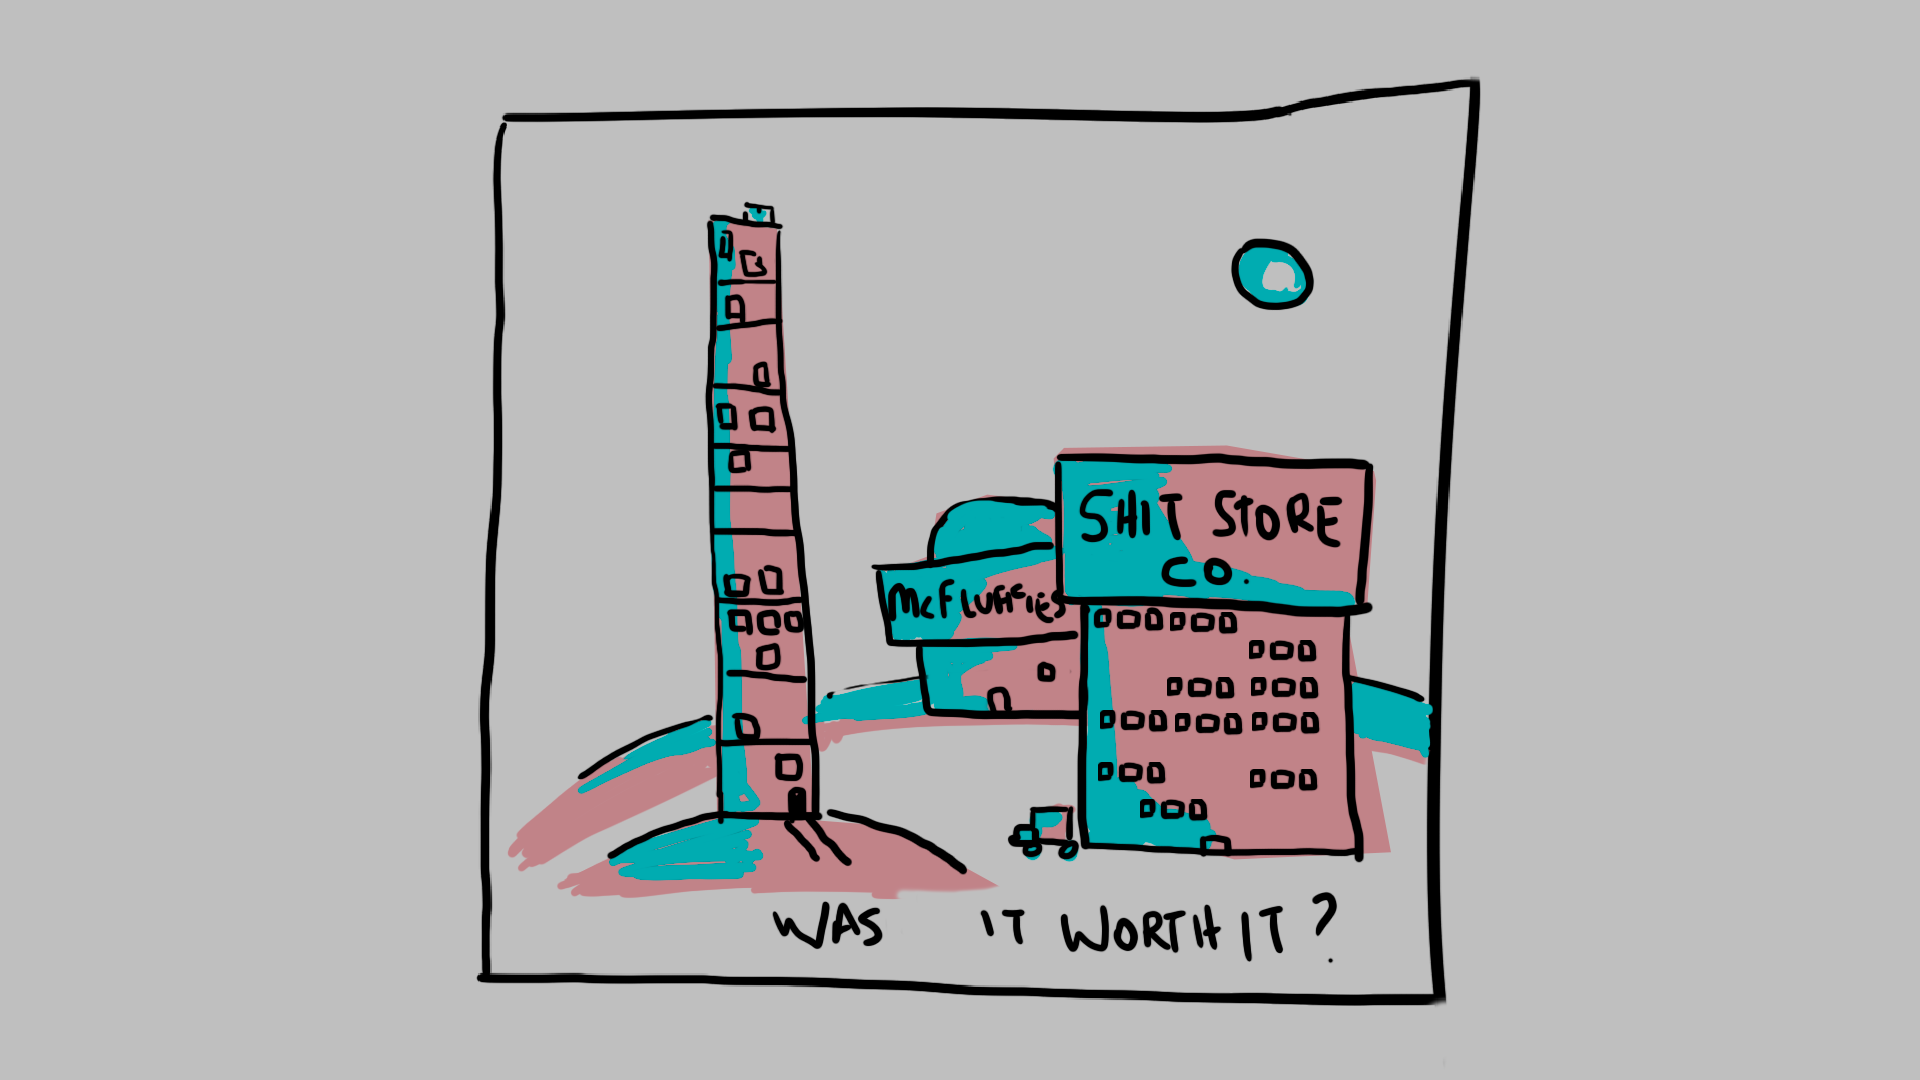 SHIT STORE
CO.
McFluffies
WAS IT WORTH IT?